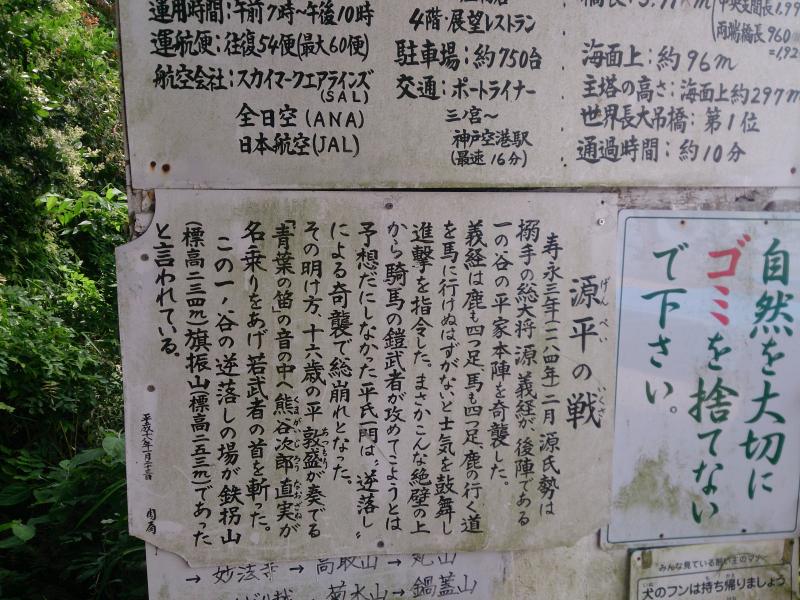 運用時間：午前7時～午後10時
運航便：往復54便(最大60便)
航空会社：スカイマークエアラインズ
(SAL)
全日空(ANA)
日本航空(JAL)
4階・展望レストラン
駐車場：約750台
交通：ポートライナー
三ノ宮～
神戸空港駅
(最速16分)
(中央支間長1.99
(両端橋長960
=1,92
海面上：約96m
主塔の高さ：海面上約297m
世界長大吊橋：第1位
通過時間：約10分
源平の戦
げんぺい いくさ
寿永三年(一一八四年)二月 源氏勢は
搦手の総大将 源 義経が、後陣である
一の谷の平家本陣を奇襲した。
義経は鹿も四つ足、馬も四つ足、鹿の行く道
を馬に行けぬはずがないと士気を鼓舞し
進撃を指令した。まさかこんな絶壁の上
から騎馬の鎧武者が攻めてこようとは
予想だにしなかった平氏一門は〝逆落し〟
による奇襲で総崩れとなった。
その明け方、十六歳の平 敦盛が奏でる
あつもり
「青葉の笛」の音の中へ熊谷次郎直実が
くまがいじろうなおざね
名乗りをあげ若武者の首を斬った。
この一ノ谷の逆落しの場が鉄拐山
(標高二三四m)旗振山(標高二五三m)であった
と言われている。
自然を大切に
ゴミを捨てない
で下さい。
→ 妙法寺 → 高取山 → 丸山
→ 菊水山 → 鍋蓋山
みんな見ている飼い主のマナー
犬のフンは持ち帰りましょう